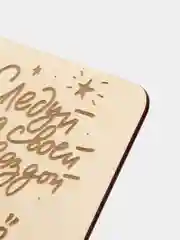 Следуй
за своей
звездой